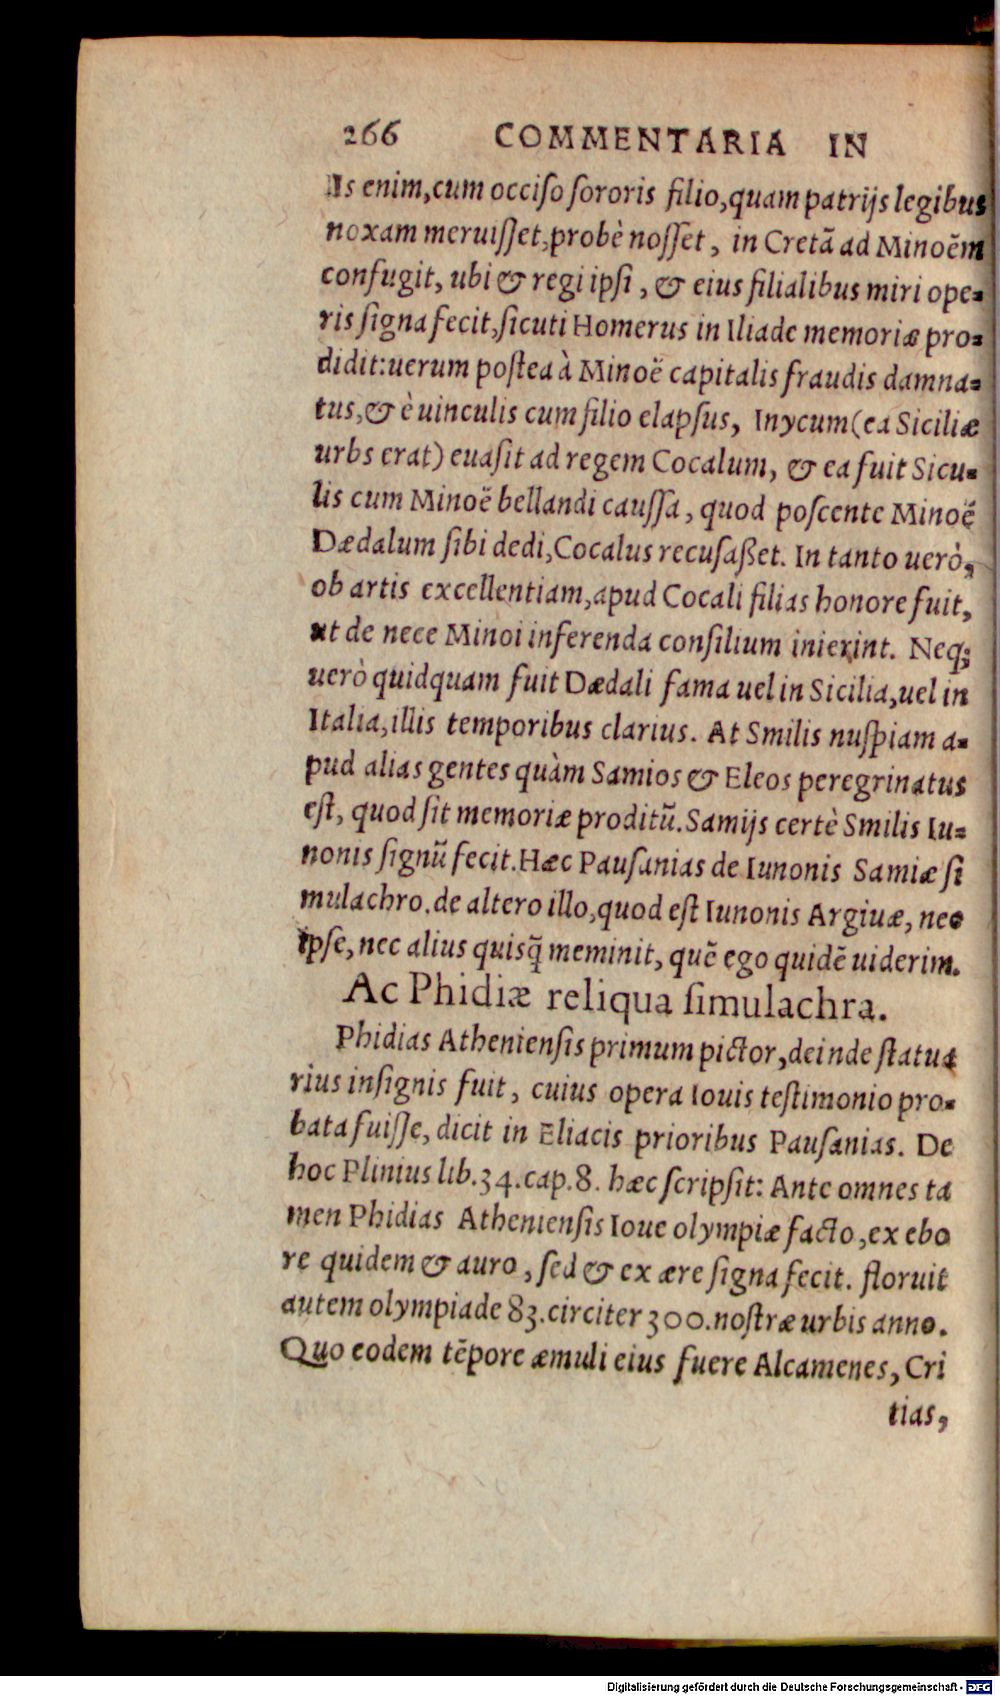 266 COMMENTARIA IN
Is enim, cum occiſo ſororis filio, quam patrijs legibus
noxam meruiſſet, probè noſſet, in Cretã ad Minoẽm
confugit, ubi & regi ipſi, & eius filialibus miri ope-
ris ſigna fecit, ſicuti Homerus in Iliade memoriæ pro-
didit: uerum poſtea à Minoë capitalis fraudis damna-
tus, & è uinculis cum filio elapſus, Inycum (ea Siciliæ
urbs erat) euaſit ad regem Cocalum, & ea fuit Sicu-
lis cum Minoë bellandi cauſſa, quod poſcente Minoë
Dædalum ſibi dedi, Cocalus recuſaßet. In tanto uerò,
ob artis excellentiam, apud Cocali filias honore fuit,
ut de nece Minoi inferenda conſilium inierint. Neq;
uerò quidquam fuit Dædali fama uel in Sicilia, uel in
Italia, illis temporibus clarius. At Smilis nuſpiam a-
pud alias gentes quàm Samios & Eleos peregrinatus
eſt, quod ſit memoriæ proditũ. Samijs certè Smilis Iu-
nonis ſignũ fecit. Hæc Pauſanias de Iunonis Samiæ ſi
mulachro. de altero illo, quod eſt Iunonis Argiuæ, nec
ipſe, nec alius quisq̃ meminit, quẽ ego quidẽ uiderim.
Ac Phidiæ reliqua ſimulachra.
Phidias Athenienſis primum pictor, deinde ſtatua
rius inſignis fuit, cuius opera Iouis teſtimonio pro-
bata fuiſſe, dicit in Eliacis prioribus Pauſanias. De
hoc Plinius lib. 34. cap. 8. hæc ſcripſit: Ante omnes ta
men Phidias Athenienſis Ioue olympiæ facto, ex ebo
re quidem & auro, ſed & ex ære ſigna fecit. floruit
autem olympiade 83. circiter 300. noſtræ urbis anno.
Quo eodem tẽpore æmuli eius fuere Alcamenes, Cri
tias,
Digitalisierung gefördert durch die Deutsche Forschungsgemeinschaft - DFG